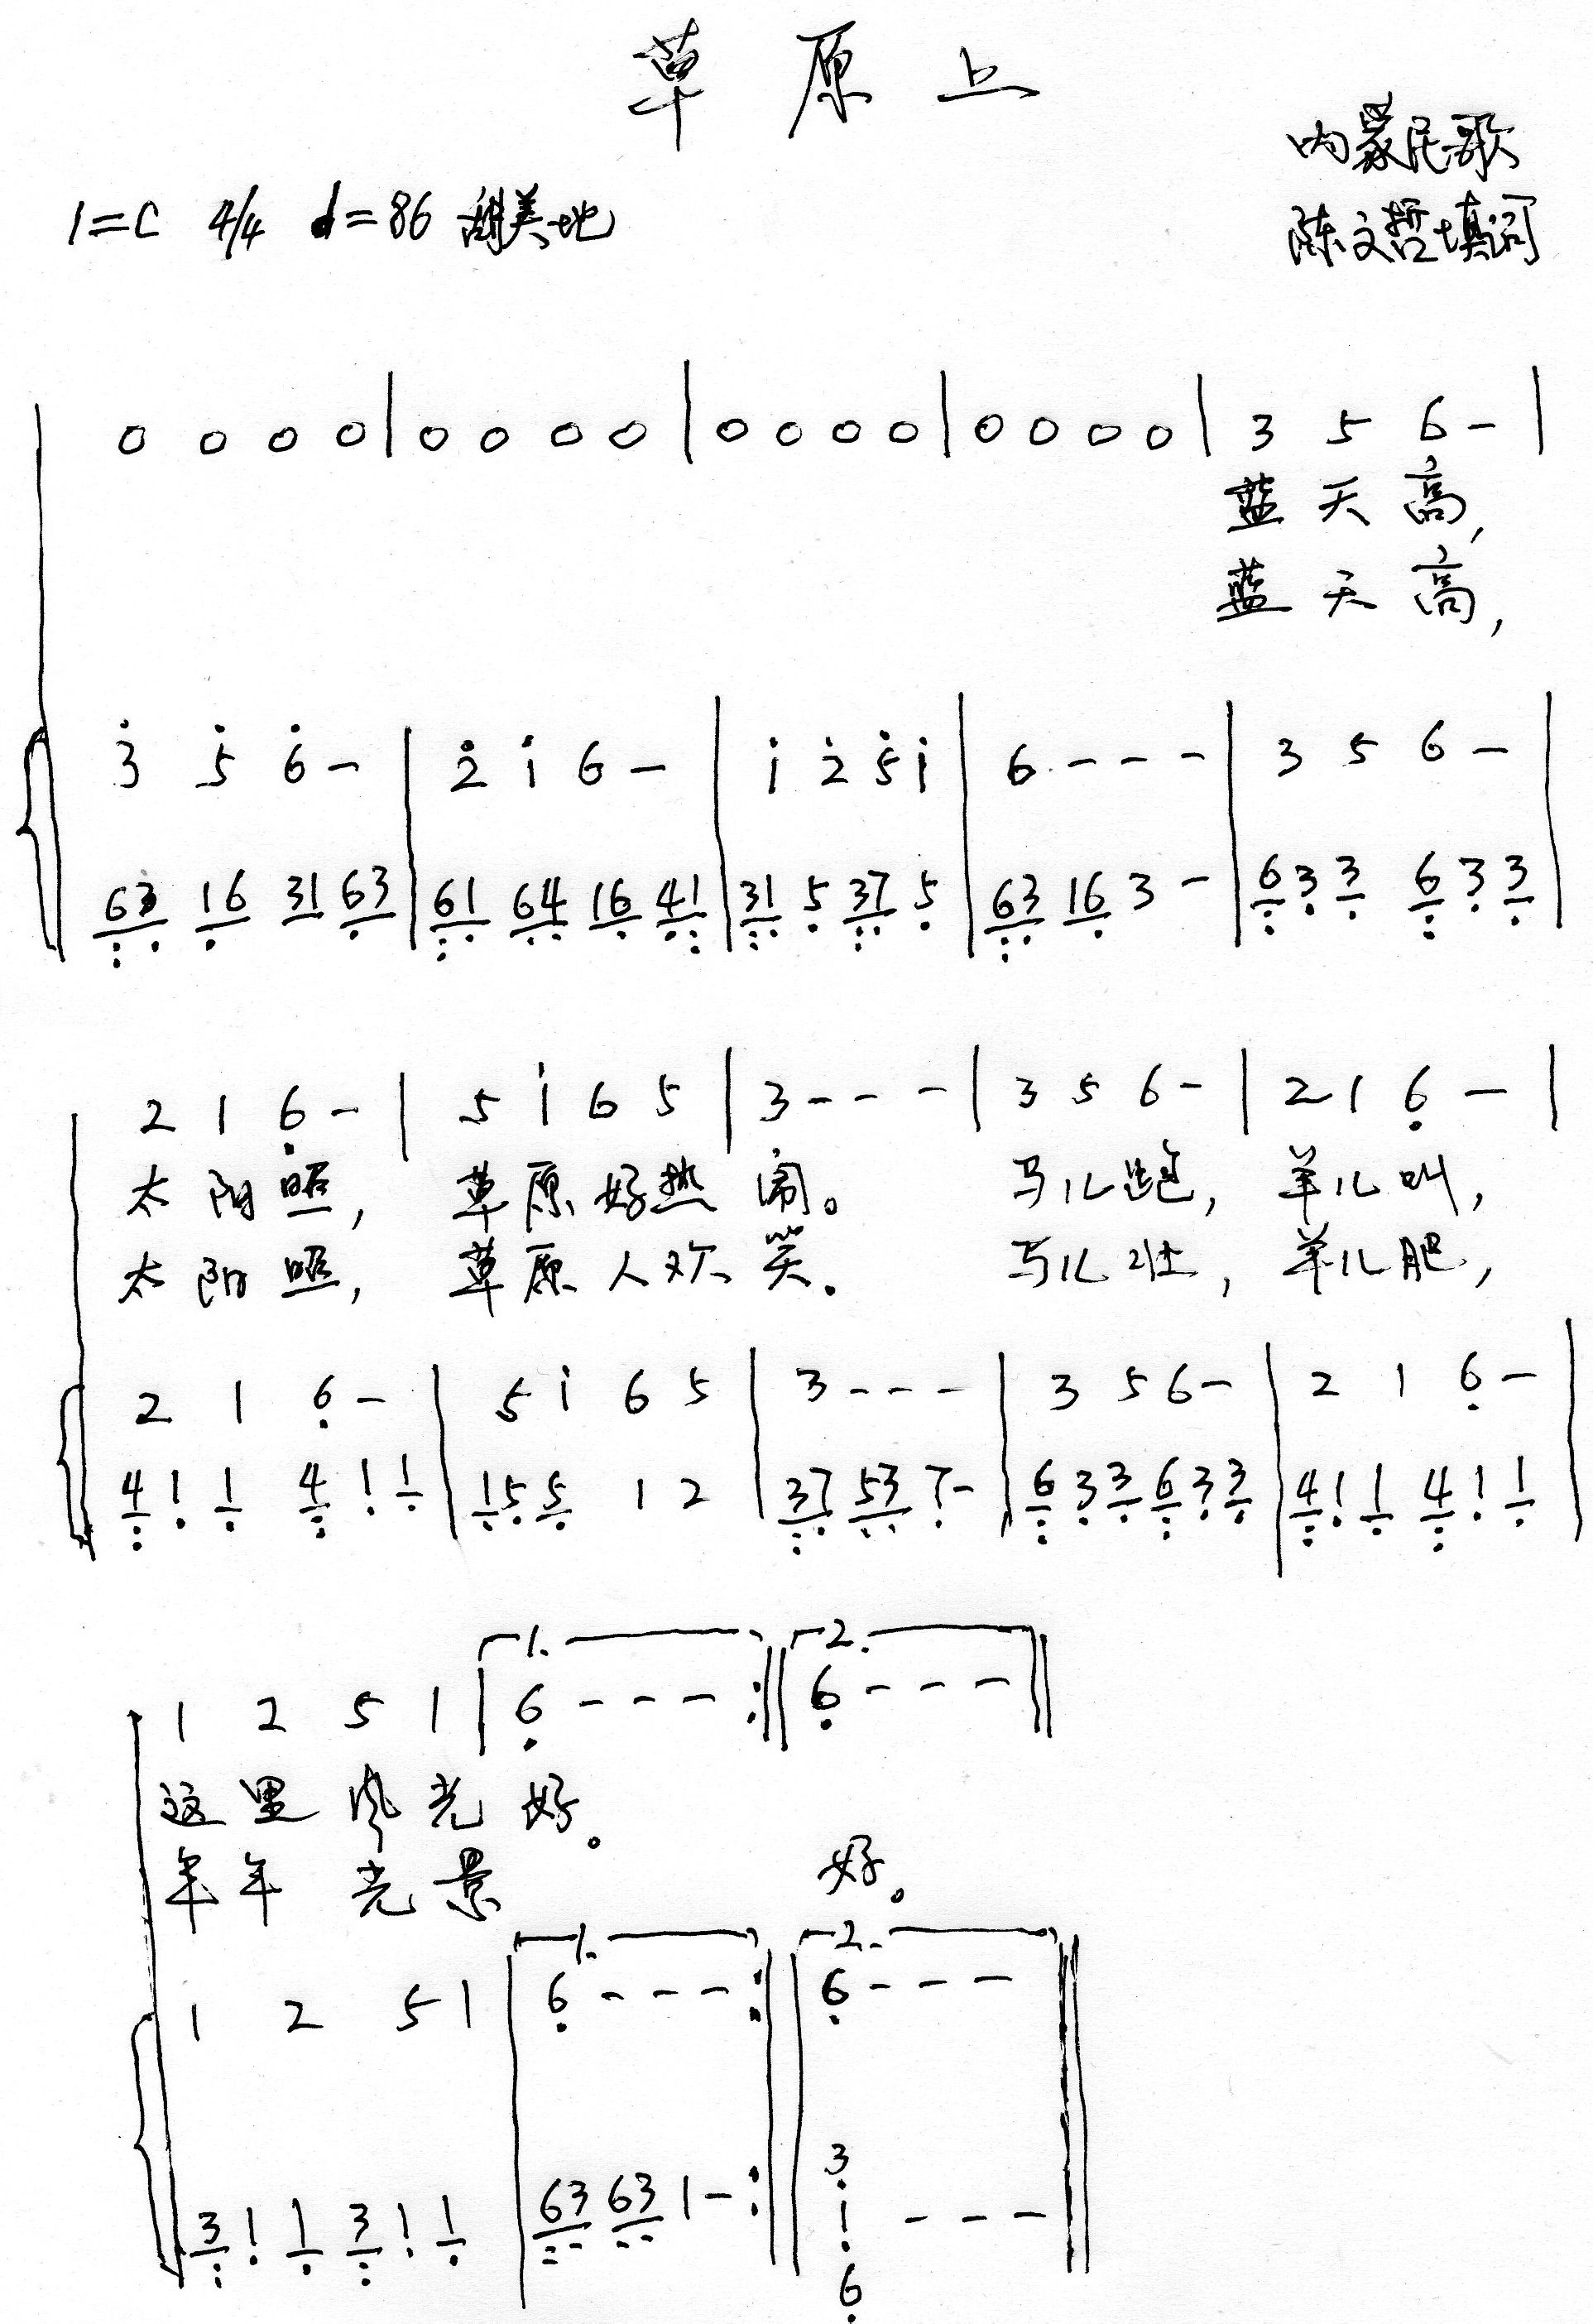 草原上
内蒙民歌
1=C 4/4 ♩=86 甜美地
陈文哲填词
0 0 0 0 | 0 0 0 0 | 0 0 0 0 | 0 0 0 0 | 3 5 6 - |
蓝天高,
蓝天高,
3̇ 5̇ 6̇ - | 2̇ 1̇ 6 - | 1̇ 2̇ 5̇ 1̇ | 6 - - - | 3 5 6 - |
63 16 31 63 | 61 64 16 41 | 31 5 37 5 | 63 16 3 - | 6 3 3 6 3 3 |
2 1 6̣ - | 5 1̇ 6 5 | 3 - - - | 3 5 6 - | 2 1 6̣ - |
太阳照, 草原好热闹。 马儿跑, 羊儿叫,
太阳照, 草原人欢笑. 马儿壮, 羊儿肥,
2 1 6̣ - | 5 1̇ 6 5 | 3 - - - | 3 5 6 - | 2 1 6̣ - |
4 1 1 4 1 1 | 1 5 5 1 2 | 37 53 7 - | 6 3 3 6 3 3 | 4 1 1 4 1 1 |
1. 2.
1 2 5 1 | 6̣ - - - :|| 6̣ - - - ||
这里风光好。
年年光景 好。
1. 2.
1 2 5 1 | 6̣ - - - :|| 6̣ - - - ||
3
3 1 1 3 1 1 | 63 63 1 - :|| 1 - - - ||
6